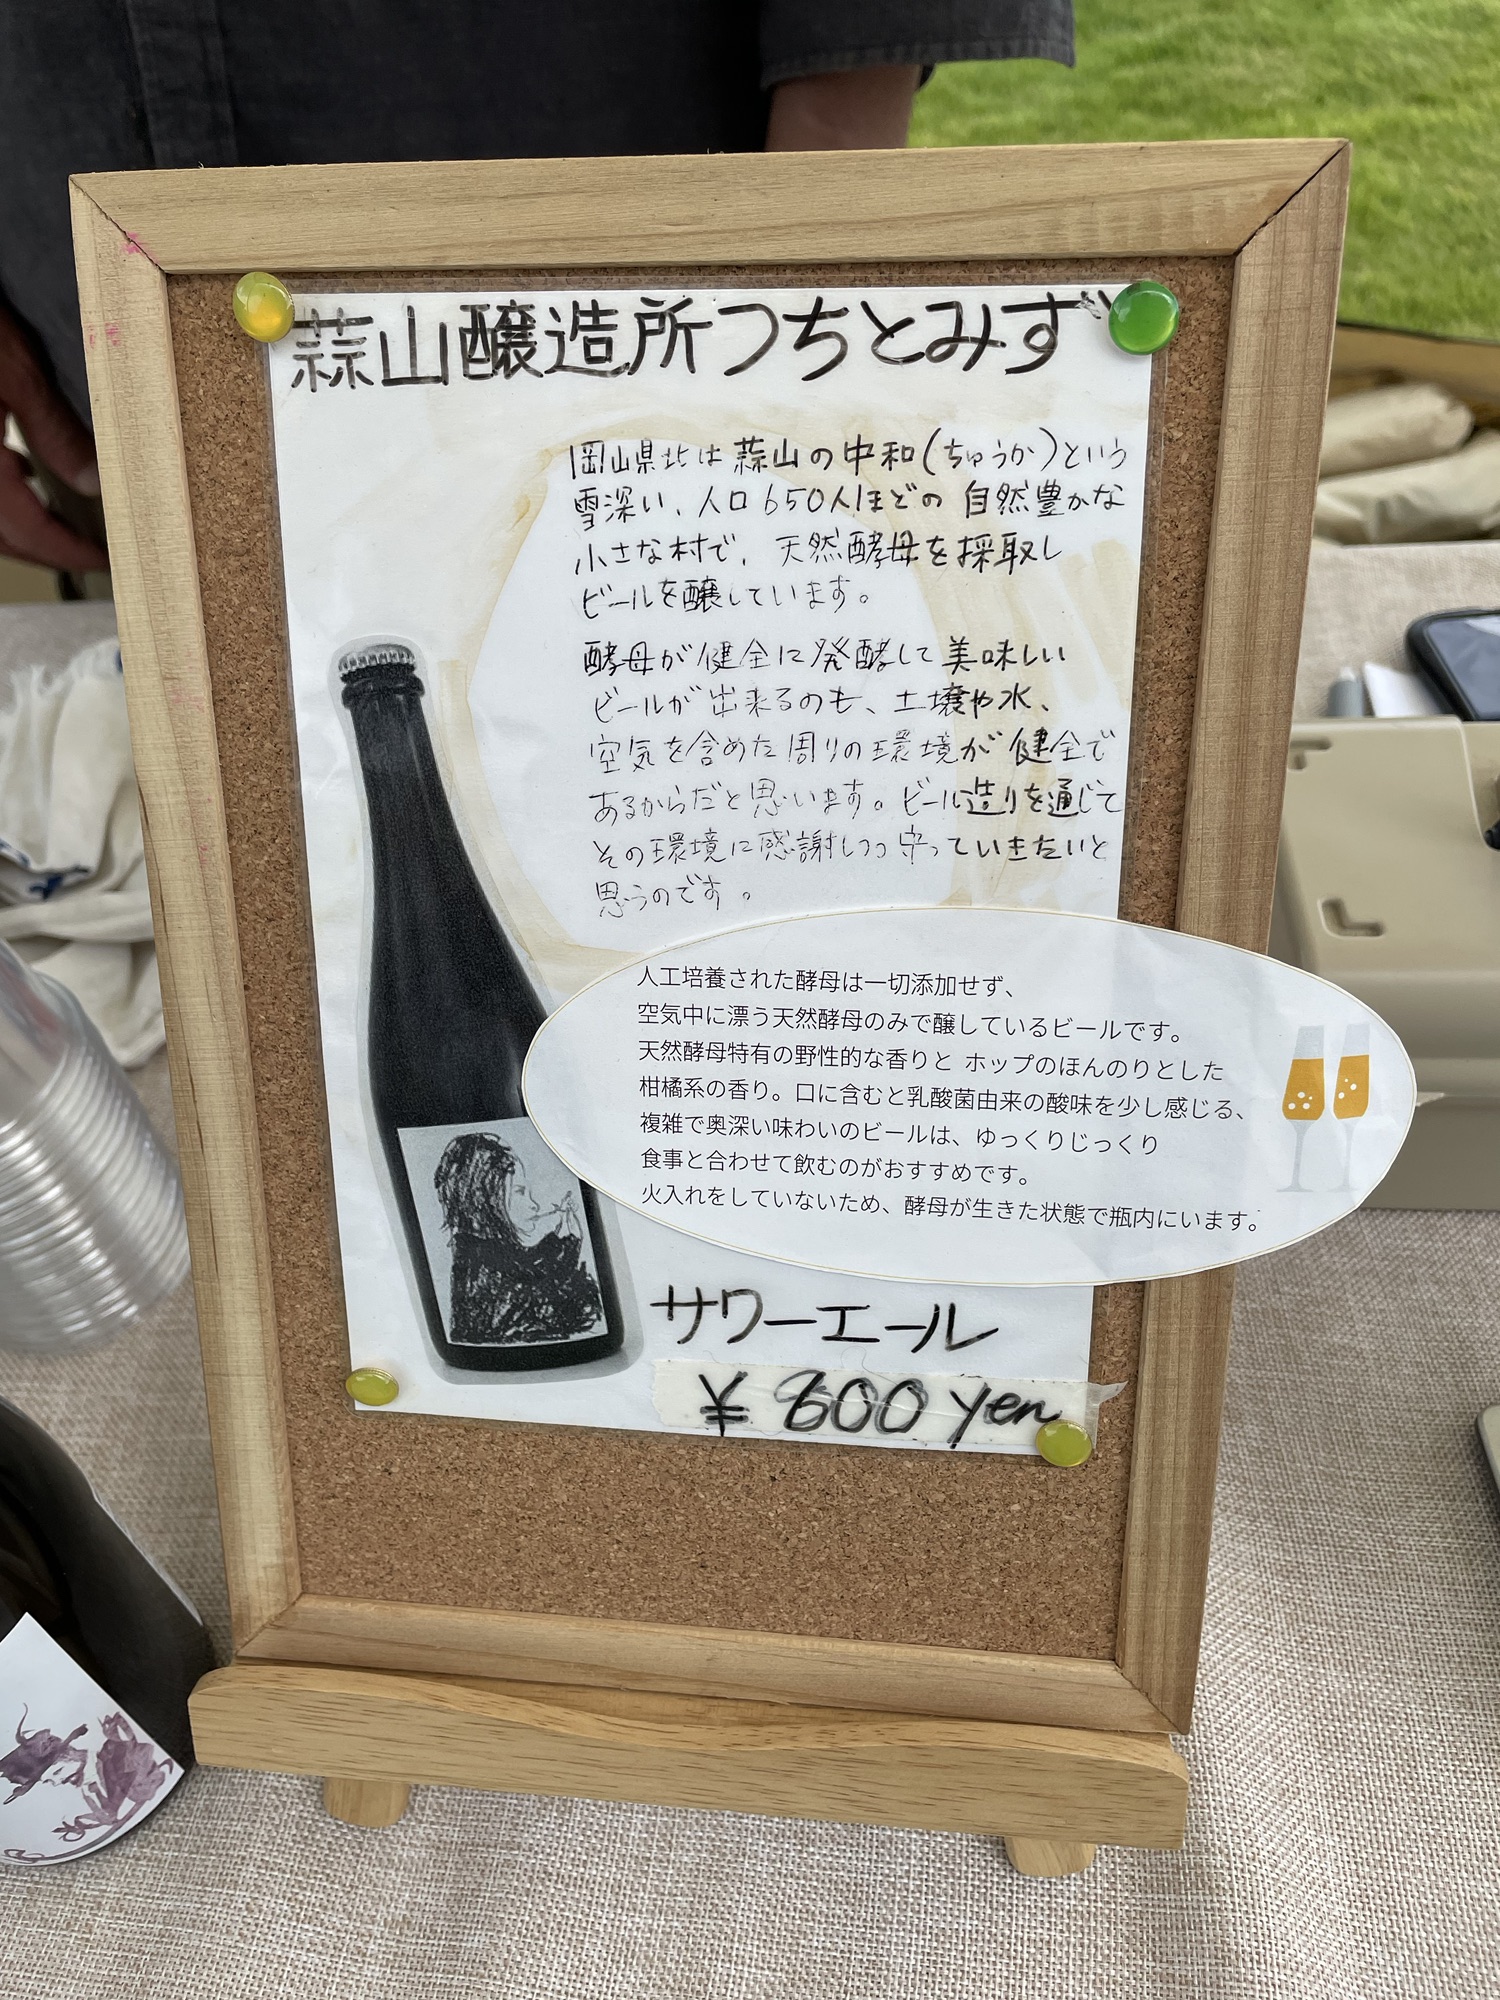 蒜山醸造所つちとみず
岡山県北は蒜山の中和(ちゅうか)という
雪深い、人口650人ほどの自然豊かな
小さな村で、天然酵母を採取し
ビールを醸しています。
酵母が健全に発酵して美味しい
ビールが出来るのも、土壌や水、
空気を含めた周りの環境が健全で
あるからだと思います。ビール造りを通じて
その環境に感謝しつつ守っていきたいと
思うのです。
人工培養された酵母は一切添加せず、
空気中に漂う天然酵母のみで醸しているビールです。
天然酵母特有の野性的な香りと ホップのほんのりとした
柑橘系の香り。口に含むと乳酸菌由来の酸味を少し感じる、
複雑で奥深い味わいのビールは、ゆっくりじっくり
食事と合わせて飲むのがおすすめです。
火入れをしていないため、酵母が生きた状態で瓶内にいます。
サワーエール
¥ 800 yen